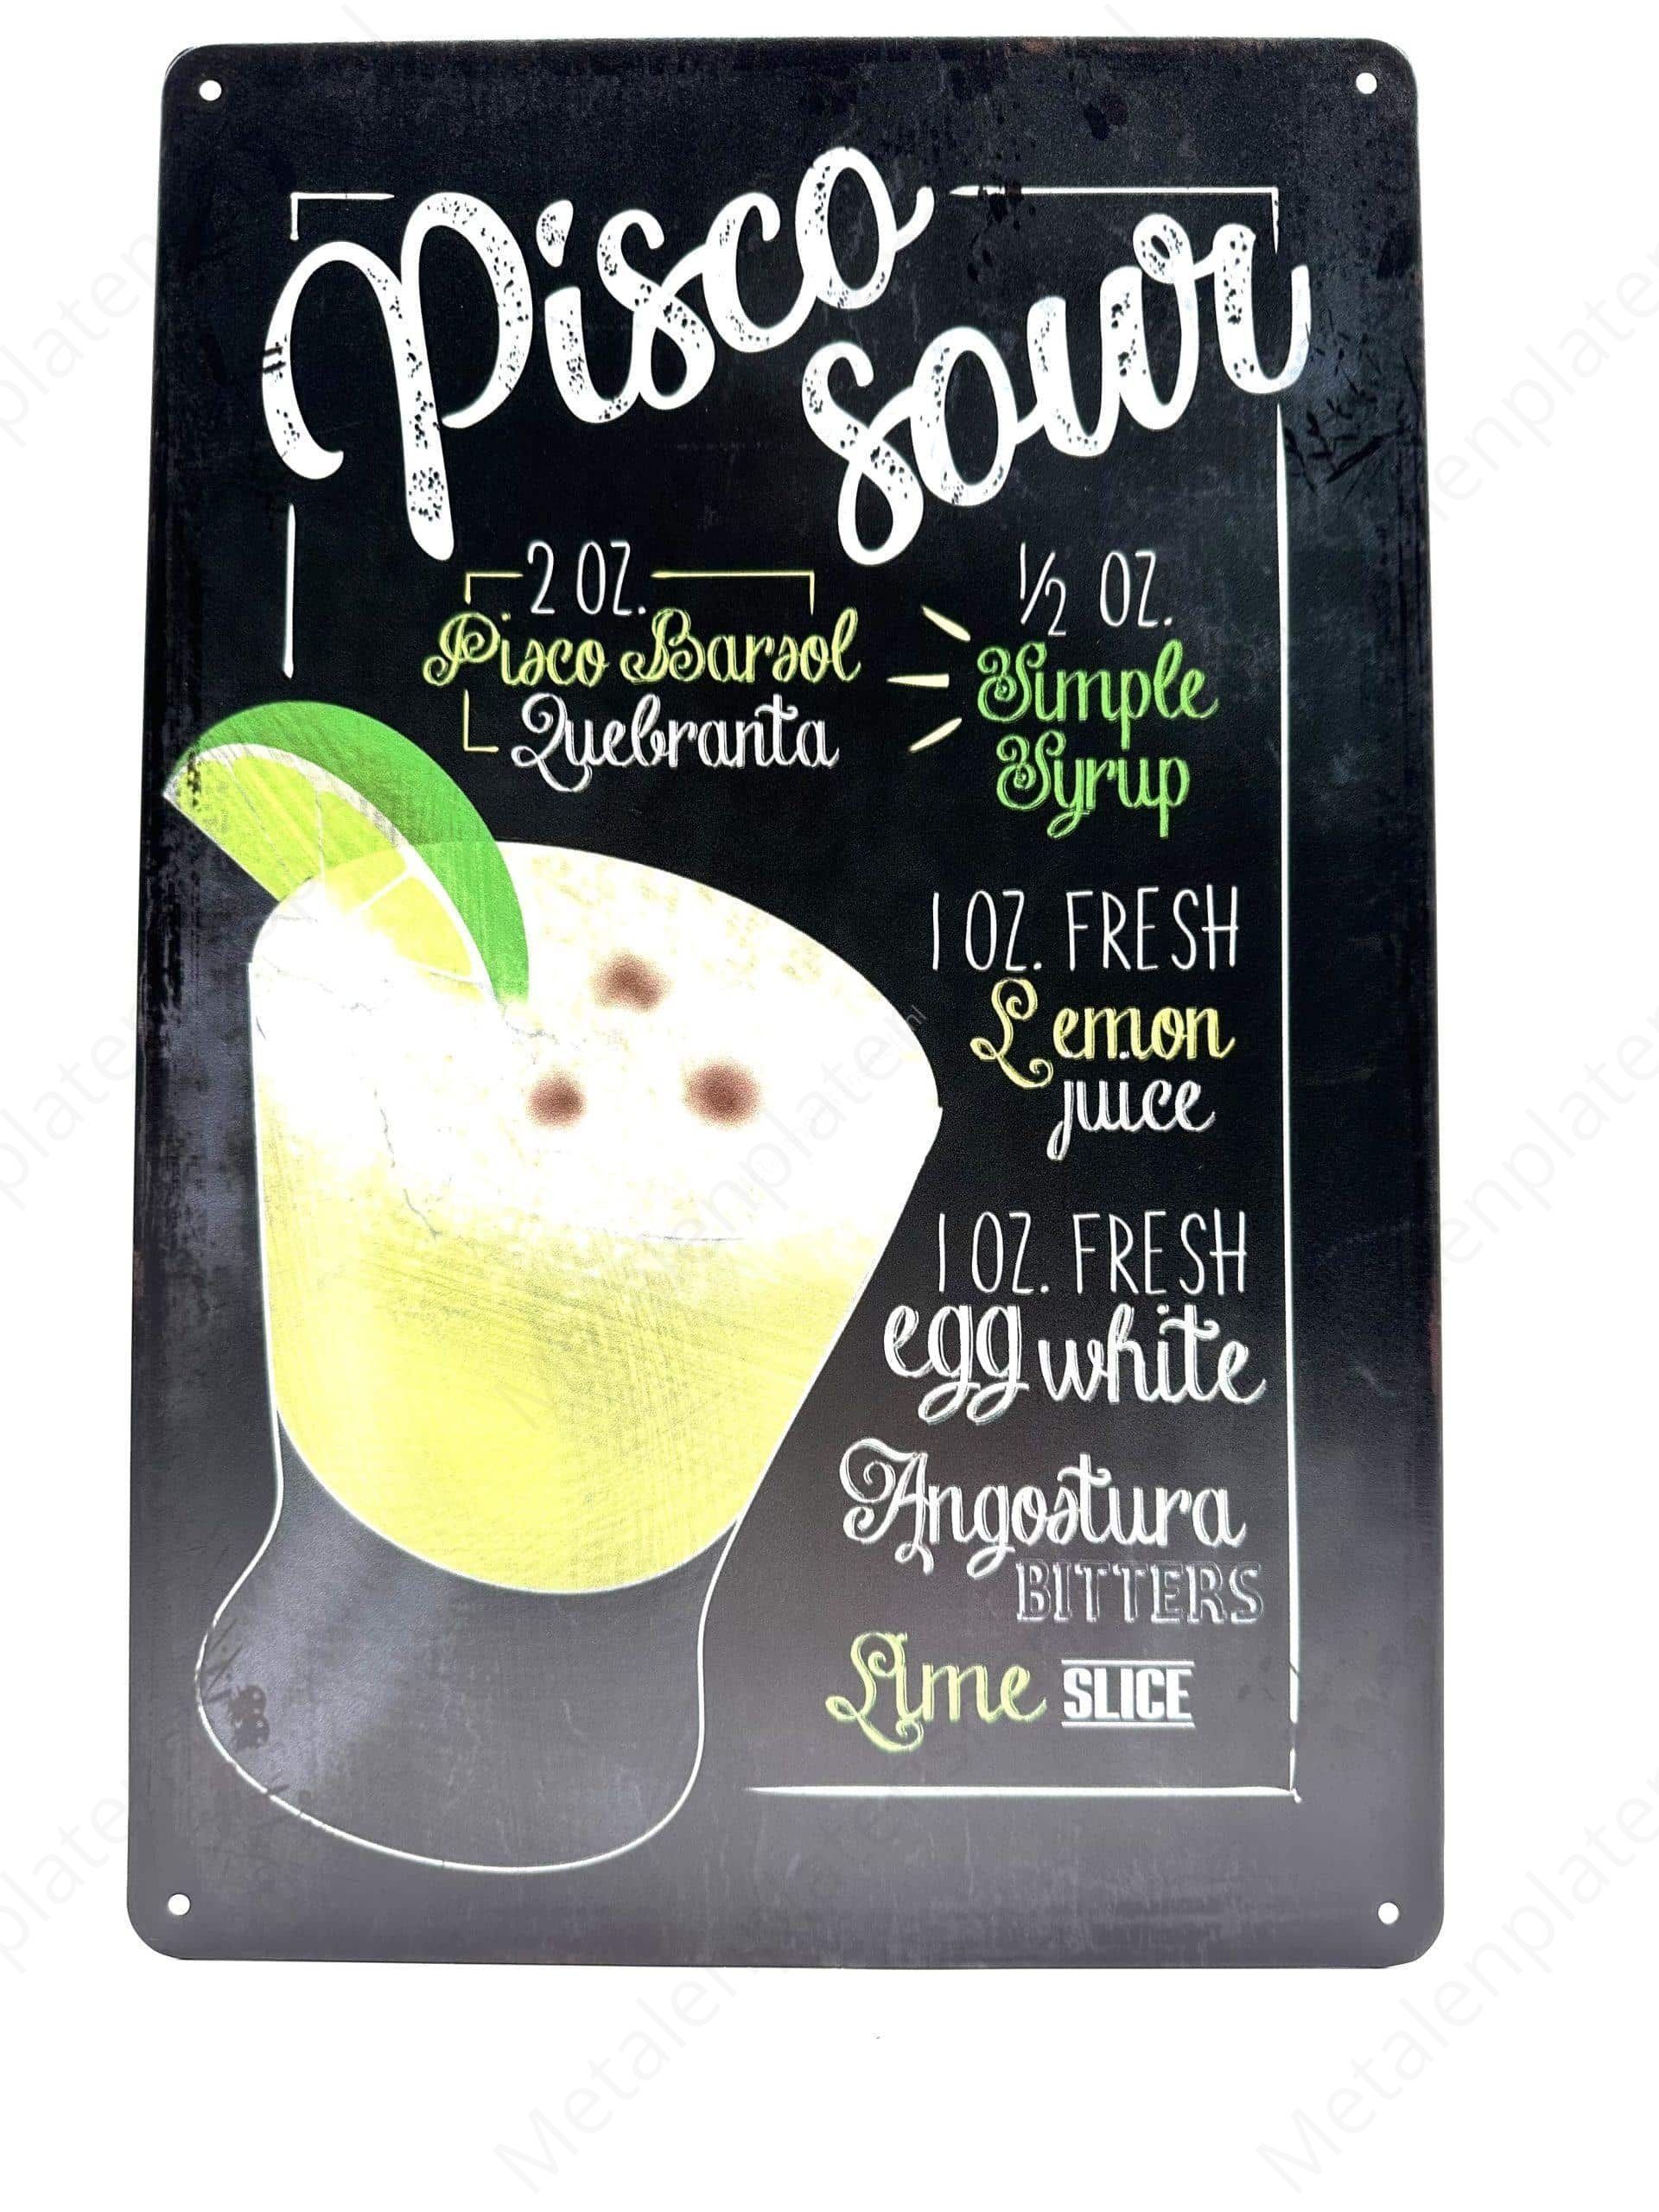 Pisco
sour
2 OZ.
Pisco Barsol
Quebranta
½ OZ.
Simple
Syrup
1 OZ. FRESH
Lemon
juice
1 OZ. FRESH
egg white
Angostura
BITTERS
Lime SLICE
Metalenplaten
Metalenplaten